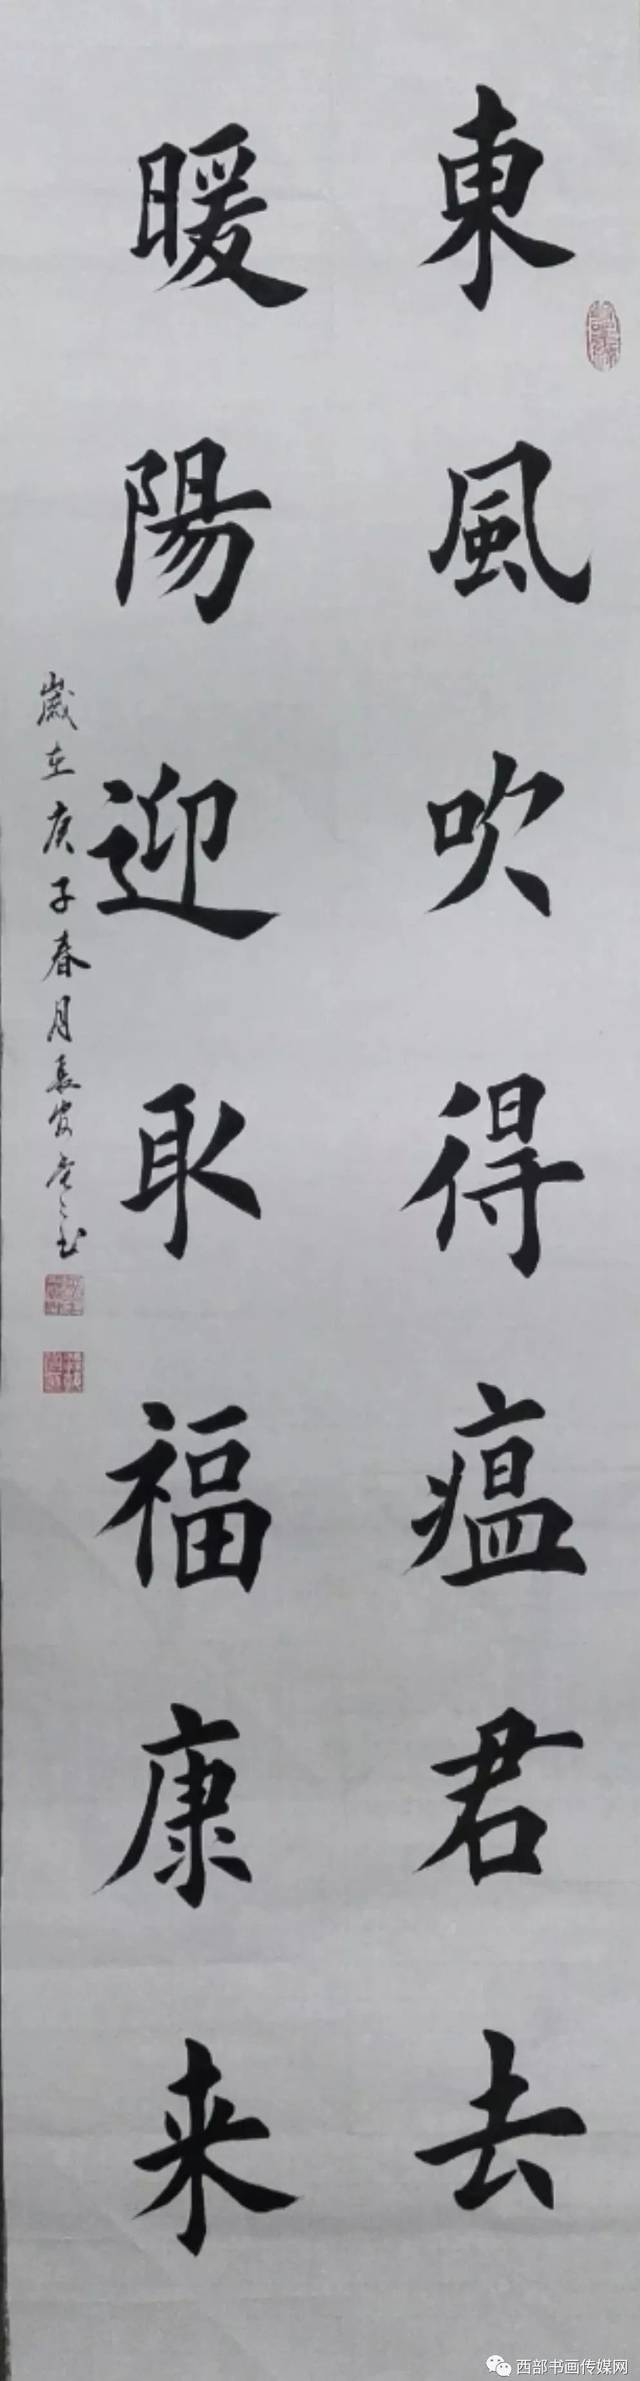 東風吹得瘟君去
暖陽迎取福康来
歲在庚子春月
西部书画传媒网